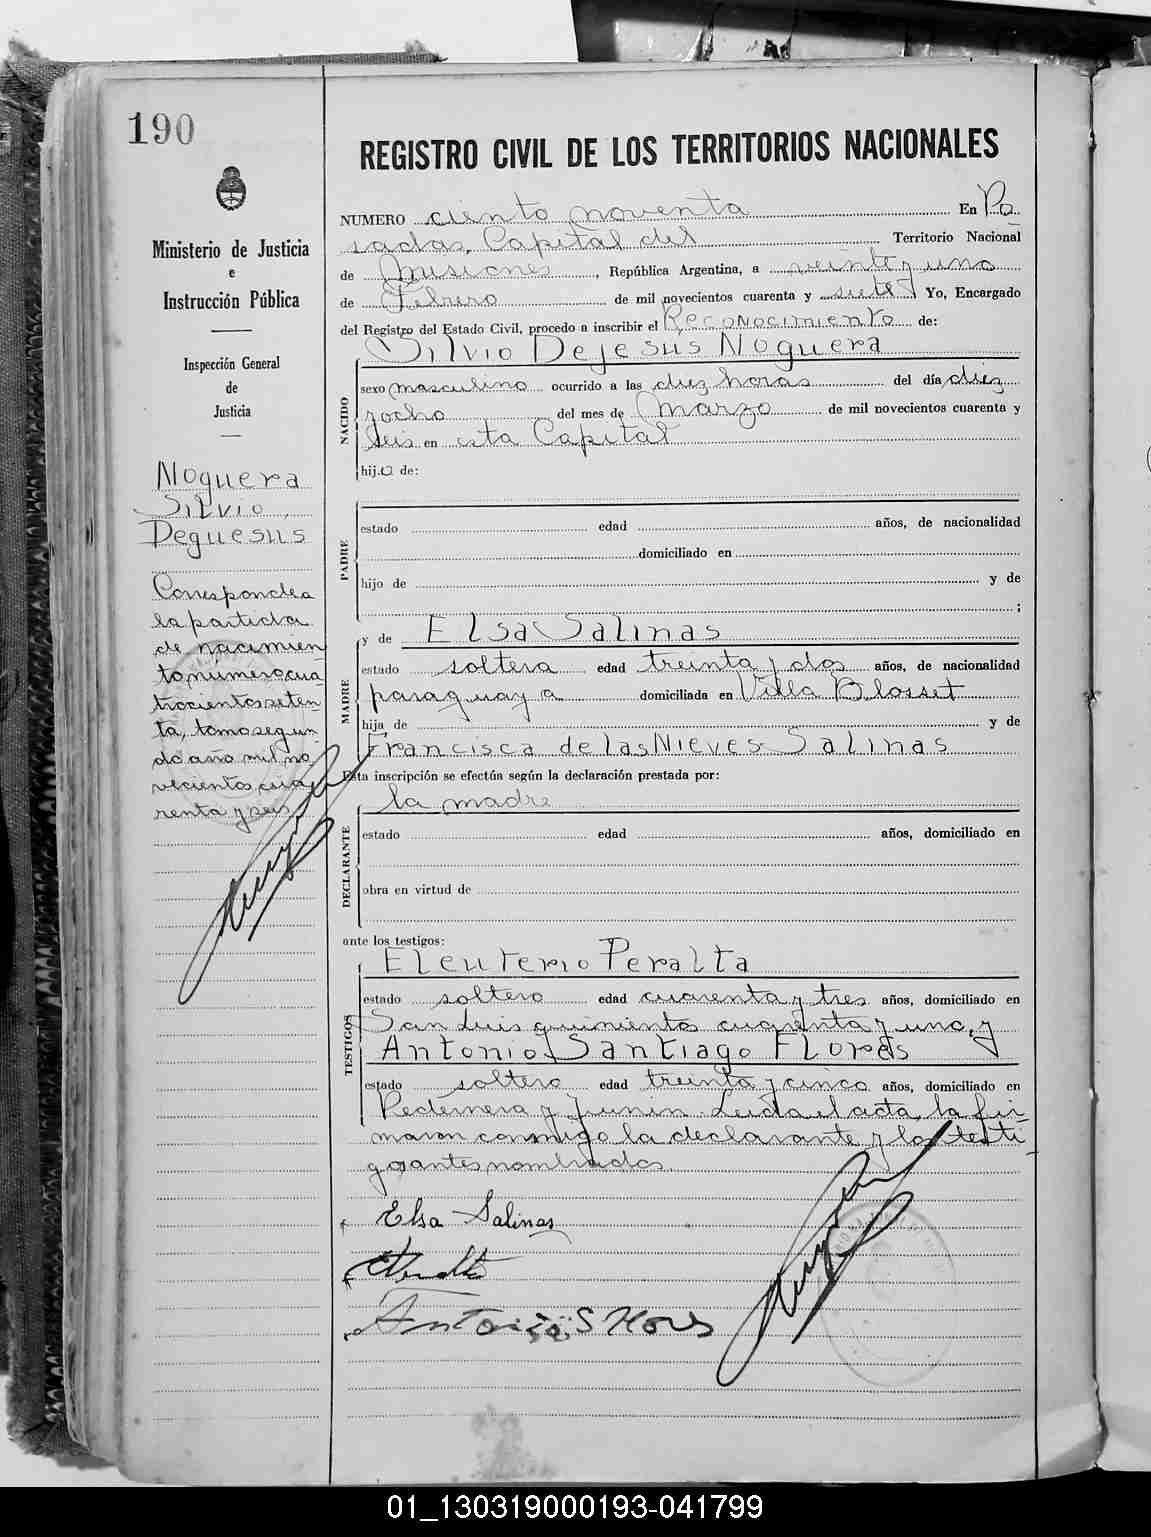 190
Ministerio de Justicia
e
Instrucción Pública
Inspección General
de
Justicia
Noguera
Silvio
Deguesus
Corresponde a
la partida
de nacimien
to, número cua
trocientos seten
ta, tomo segun
do año mil no
vecientos cua
renta y seis
REGISTRO CIVIL DE LOS TERRITORIOS NACIONALES
NUMERO ciento noventa En Po
sadas, Capital del Territorio Nacional
de Misiones, República Argentina, a veinte y uno
de Febrero de mil novecientos cuarenta y siete Yo, Encargado
del Registro del Estado Civil, procedo a inscribir el Reconocimiento de:
Silvio Dejesus Noguera
NACIDO
sexo masculino ocurrido a las diez horas del día diez
y ocho del mes de Marzo de mil novecientos cuarenta y
seis en esta Capital
hijo de:
PADRE
estado edad años, de nacionalidad
domiciliado en
hijo de y de
;
MADRE
y de Elsa Salinas
estado soltera edad treinta y dos años, de nacionalidad
paraguaya domiciliada en Villa Blosset
hija de y de
Francisca de las Nieves Salinas
Esta inscripción se efectúa según la declaración prestada por:
la madre
DECLARANTE
estado edad años, domiciliado en
obra en virtud de
ante los testigos:
TESTIGOS
Eleuterio Peralta
estado soltero edad cuarenta y tres años, domiciliado en
San Luis quinientos cuarenta y uno, y
Antonio Santiago Flores
estado soltero edad treinta y cinco años, domiciliado en
Pedernera y Junin. Leida el acta, la fir-
maron conmigo la declarante y los testi-
gos antes nombrados.
Elsa Salinas
Antonio S Flores
01_130319000193-041799